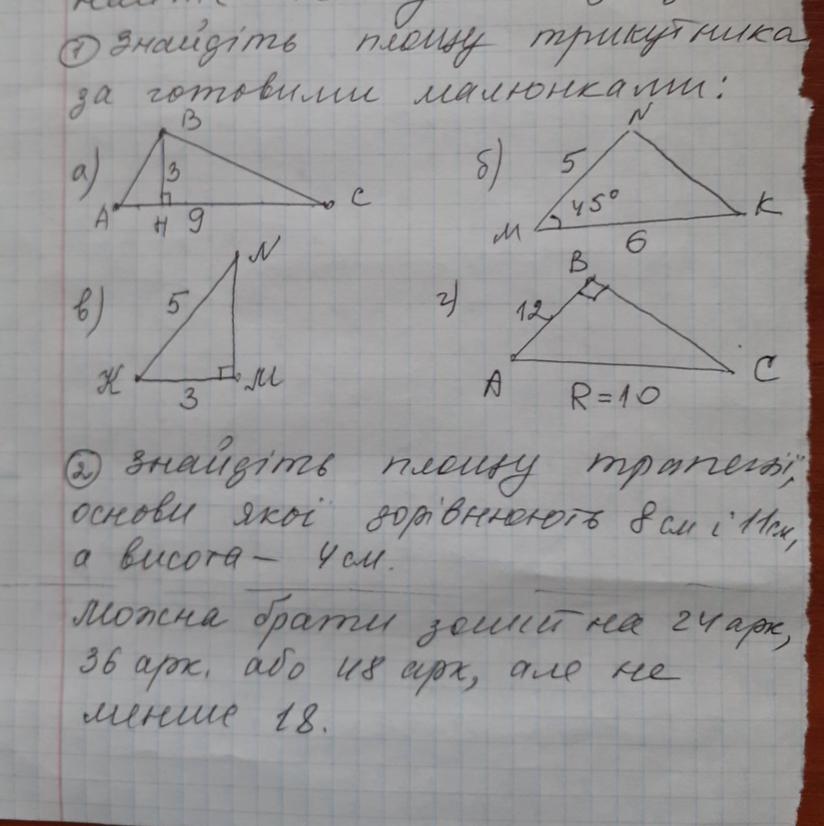 ① Знайдіть площу трикутника
за готовими малюнками:
а) B 3 A H 9 C
б) N 5 45° M 6 K
в) N 5 K 3 M
г) B 12 A C R=10
② Знайдіть площу трапеції,
основи якої дорівнюють 8 см і 11 см,
а висота – 4 см.
Можна брати зошит на 24 арк,
36 арк. або 48 арк, але не
менше 18.